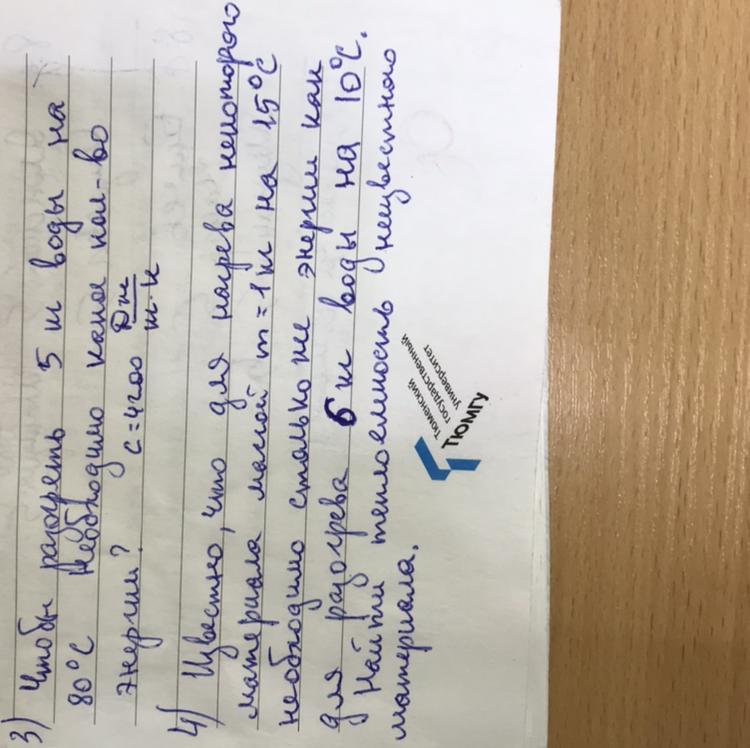 3) Чтобы разогреть 5 кг воды на
80°C Необходимо какое кол-во
энергии? c=4200 Дж/кг·К
4) Известно, что для нагрева некоторого
материала массой m=1кг на 15°C
необходимо столько же энергии как
для разогрева 6 кг воды на 10°C.
Найти теплоемкость неизвестного
материала.
Тюменский
государственный
университет
ТЮМГУ